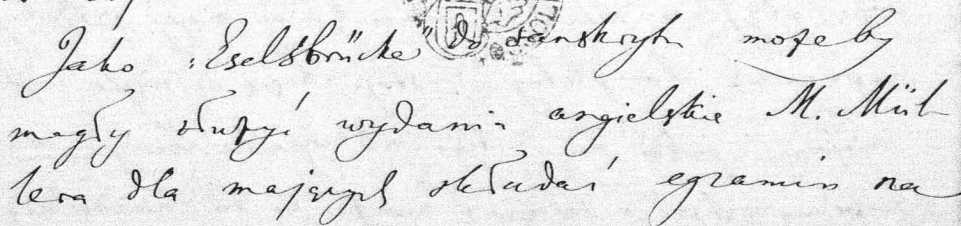 Jako „Eselsbrücke" do sanskrytu możeby
mogły służyć wydania angielskie M. Mül-
lera dla mających składać egzamin na